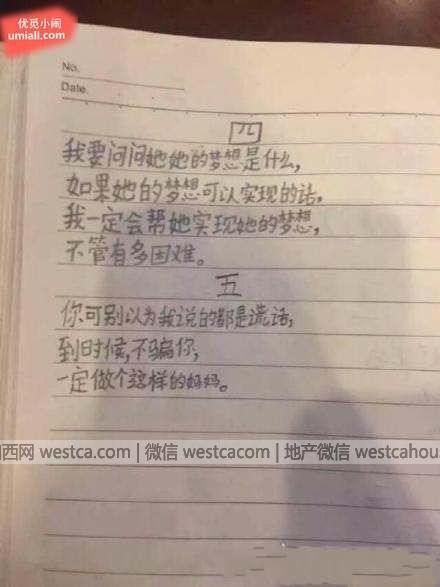 优觅小闹
umiali.com
No.
Date.
四
我要问问她她的梦想是什么,
如果她的梦想可以实现的话,
我一定会帮她实现她的梦想,
不管有多困难。
五
你可别以为我说的都是谎话,
到时候,不骗你,
一定做个这样的好妈。
西网 westca.com | 微信 westcacom | 地产微信 westcahous